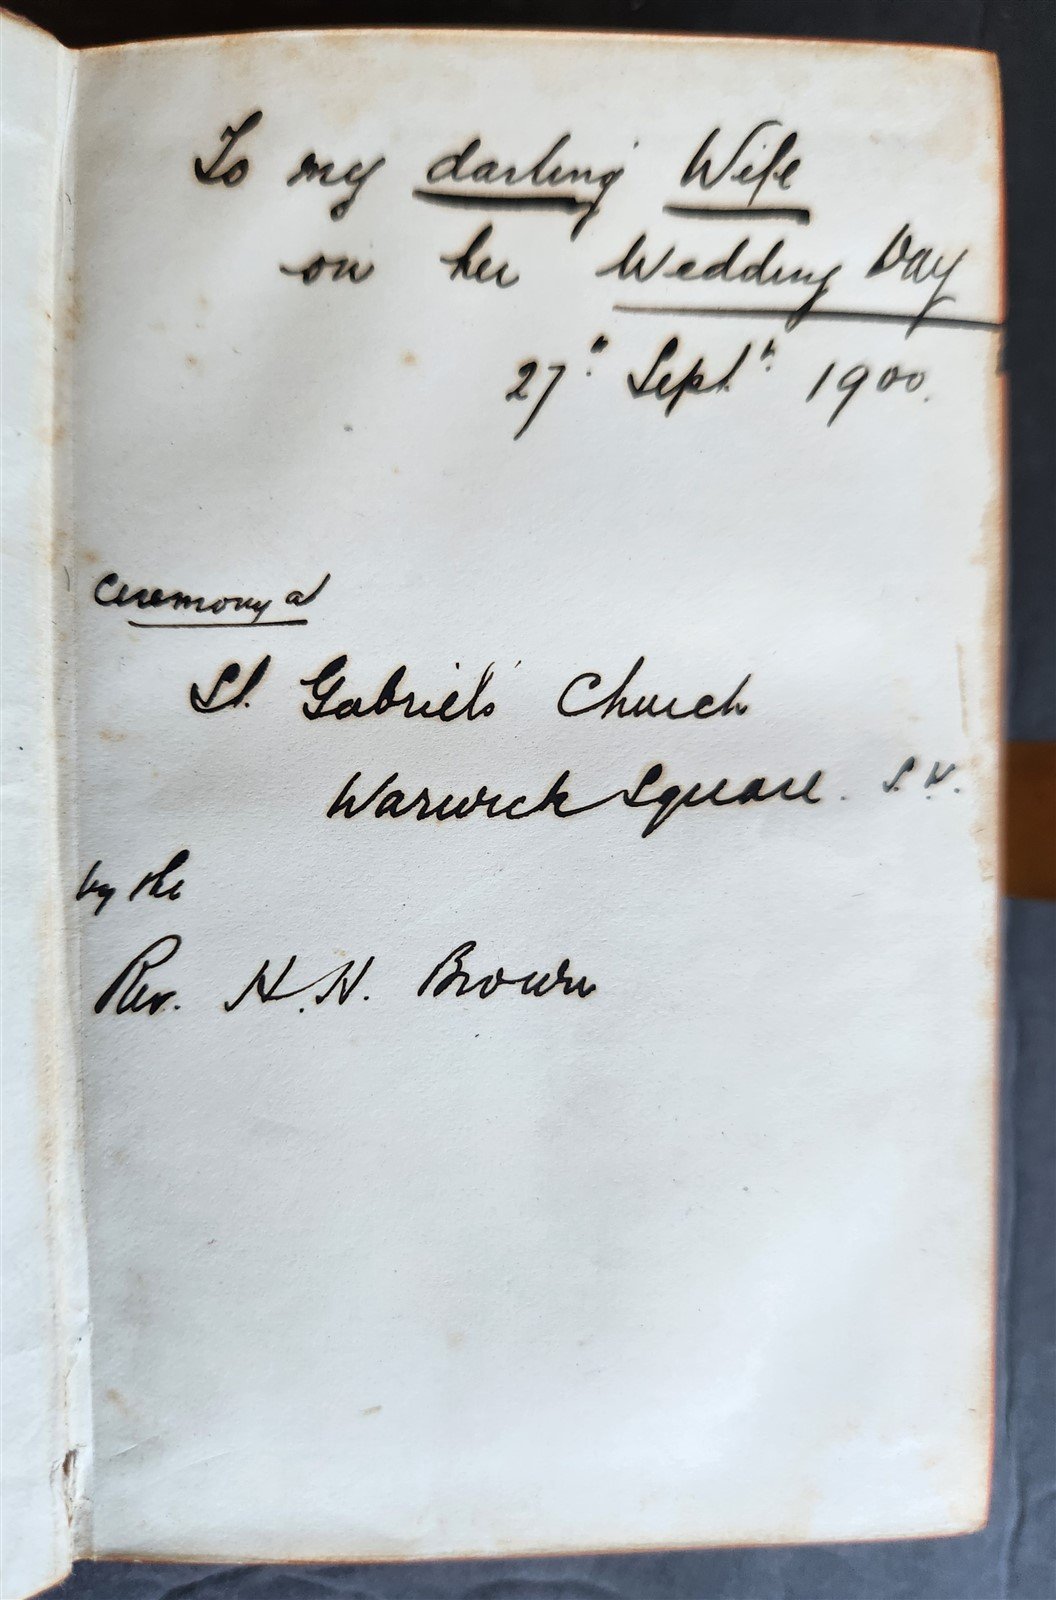 To my darling Wife
on her Wedding Day
27" Sept" 1900.
Ceremony at
St. Gabriel's Church
Warwick Square. S.W.
by the
Rev. H.H. Brown